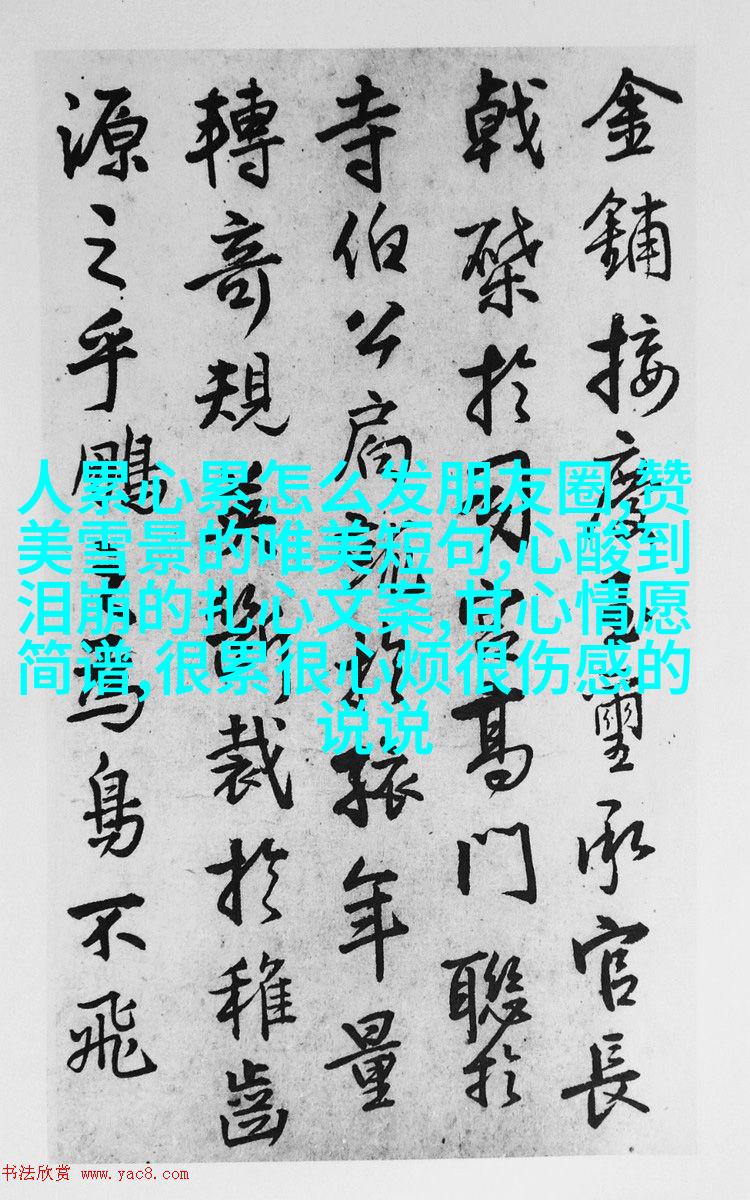 金鋪接慶璽承官長
戟棨於高門聯於
寺伯公扃於年量
轉奇規斷裁於稚齒
源之乎不飛
人累心累怎么发朋友圈,赞
美雪景的唯美短句,心酸到
泪崩的扎心文案,甘心情愿
简谱,很累很心烦很伤感的
说说
书法欣赏 www.yac8.com